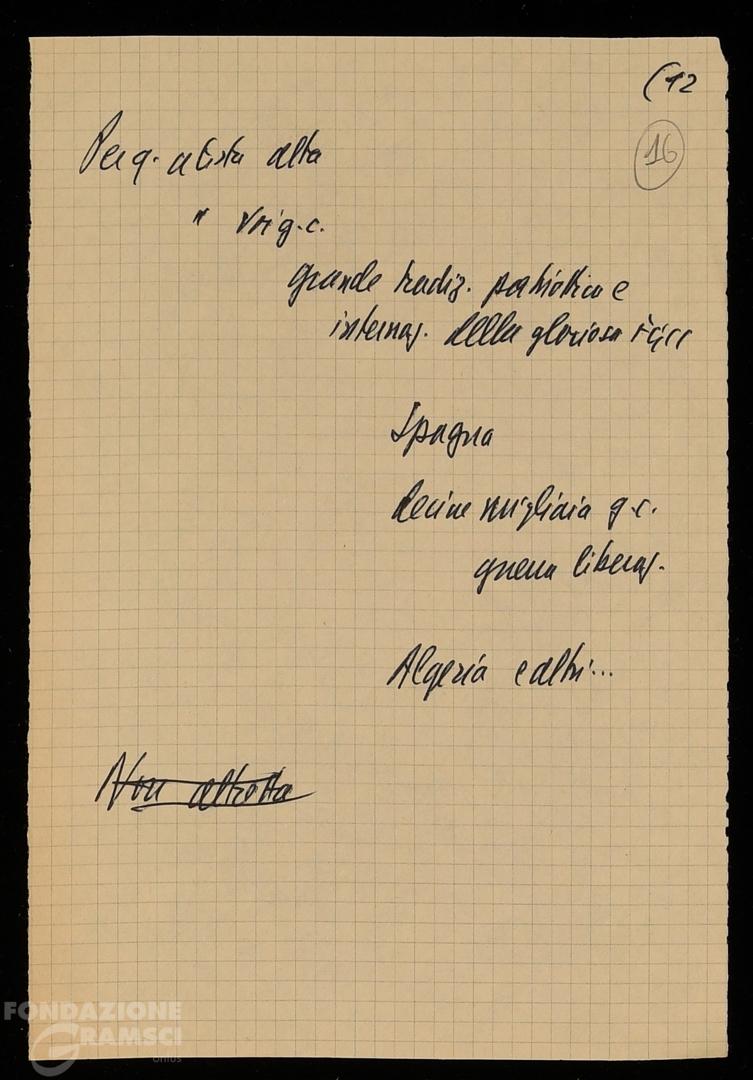 (12
16
Per q. alta
" voi g.c.
grande tradiz. patriottica e
internaz. della gloriosa FGCI
Spagna
decine migliaia g.c.
guerra liberaz.
Algeria e altri...
Non
FONDAZIONE
GRAMSCI
onlus